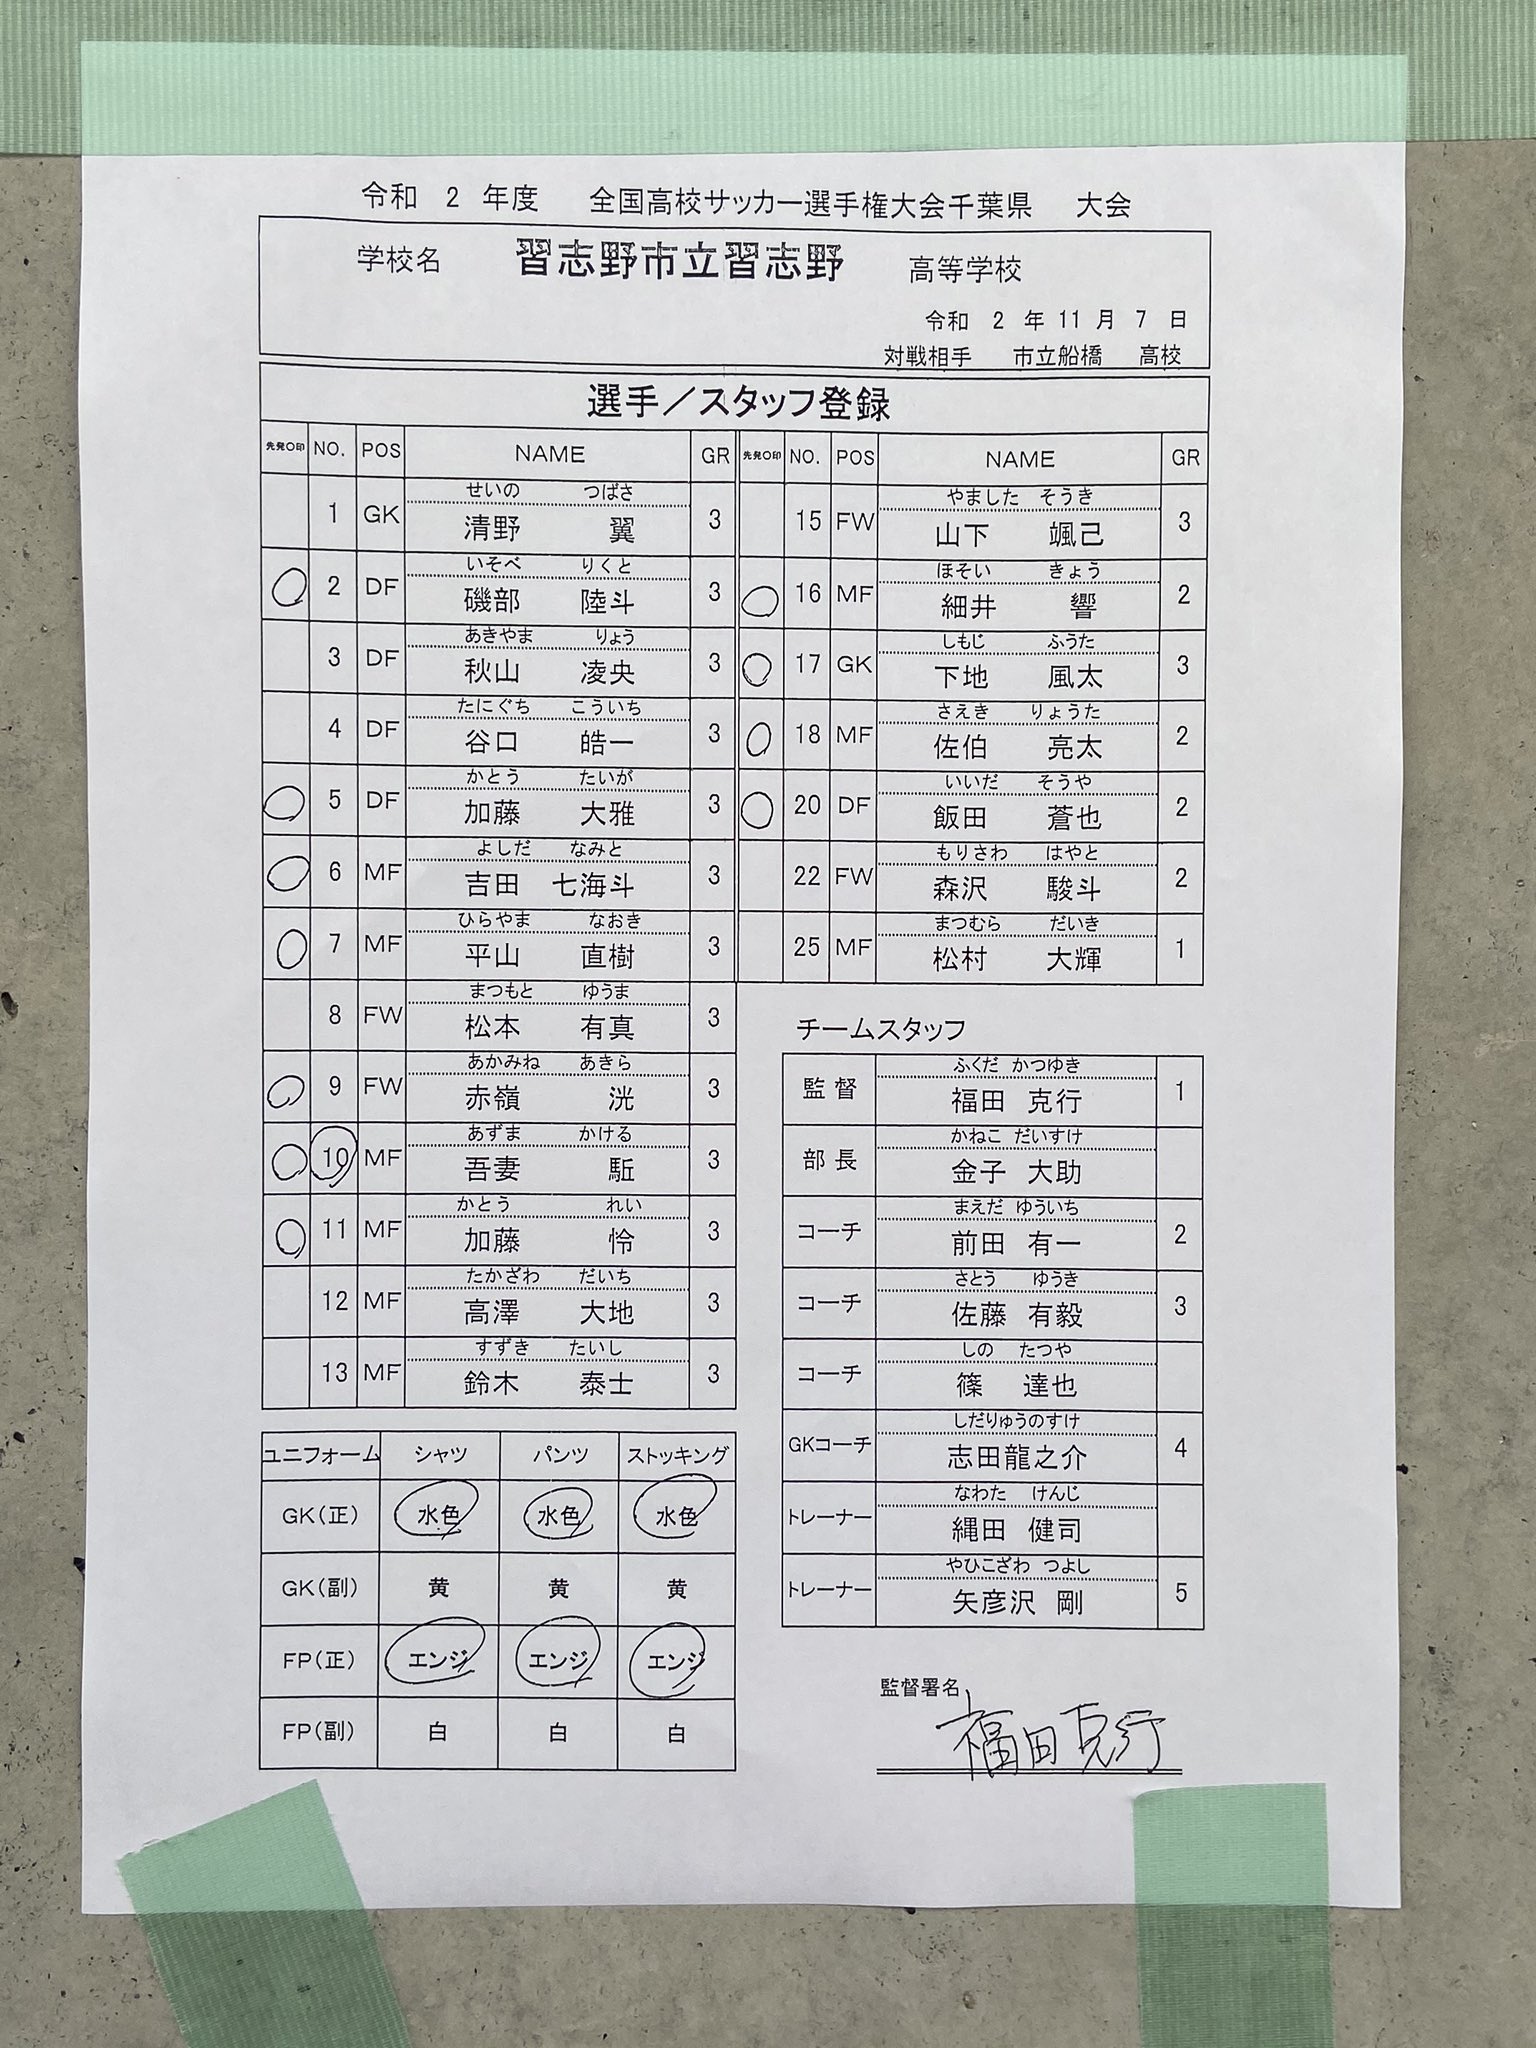 令和 2 年度 全国高校サッカー選手権大会千葉県 大会
学校名 習志野市立習志野 高等学校
令和 2 年 11 月 7 日
対戦相手 市立船橋 高校
選手／スタッフ登録
先発〇印 NO. POS NAME GR
せいの つばさ
1 GK 清野 翼 3
いそべ りくと
2 DF 磯部 陸斗 3
あきやま りょう
3 DF 秋山 凌央 3
たにぐち こういち
4 DF 谷口 皓一 3
かとう たいが
5 DF 加藤 大雅 3
よしだ なみと
6 MF 吉田 七海斗 3
ひらやま なおき
7 MF 平山 直樹 3
まつもと ゆうま
8 FW 松本 有真 3
あかみね あきら
9 FW 赤嶺 洸 3
あずま かける
10 MF 吾妻 駈 3
かとう れい
11 MF 加藤 怜 3
たかざわ だいち
12 MF 高澤 大地 3
すずき たいし
13 MF 鈴木 泰士 3
先発〇印 NO. POS NAME GR
やました そうき
15 FW 山下 颯己 3
ほそい きょう
16 MF 細井 響 2
しもじ ふうた
17 GK 下地 風太 3
さえき りょうた
18 MF 佐伯 亮太 2
いいだ そうや
20 DF 飯田 蒼也 2
もりさわ はやと
22 FW 森沢 駿斗 2
まつむら だいき
25 MF 松村 大輝 1
チームスタッフ
ふくだ かつゆき
監督 福田 克行 1
かねこ だいすけ
部長 金子 大助
まえだ ゆういち
コーチ 前田 有一 2
さとう ゆうき
コーチ 佐藤 有毅 3
しの たつや
コーチ 篠 達也
しだりゅうのすけ
GKコーチ 志田龍之介 4
なわた けんじ
トレーナー 縄田 健司
やひこざわ つよし
トレーナー 矢彦沢 剛 5
ユニフォーム シャツ パンツ ストッキング
GK(正) 水色 水色 水色
GK(副) 黄 黄 黄
FP(正) エンジ エンジ エンジ
FP(副) 白 白 白
監督署名
福田克行